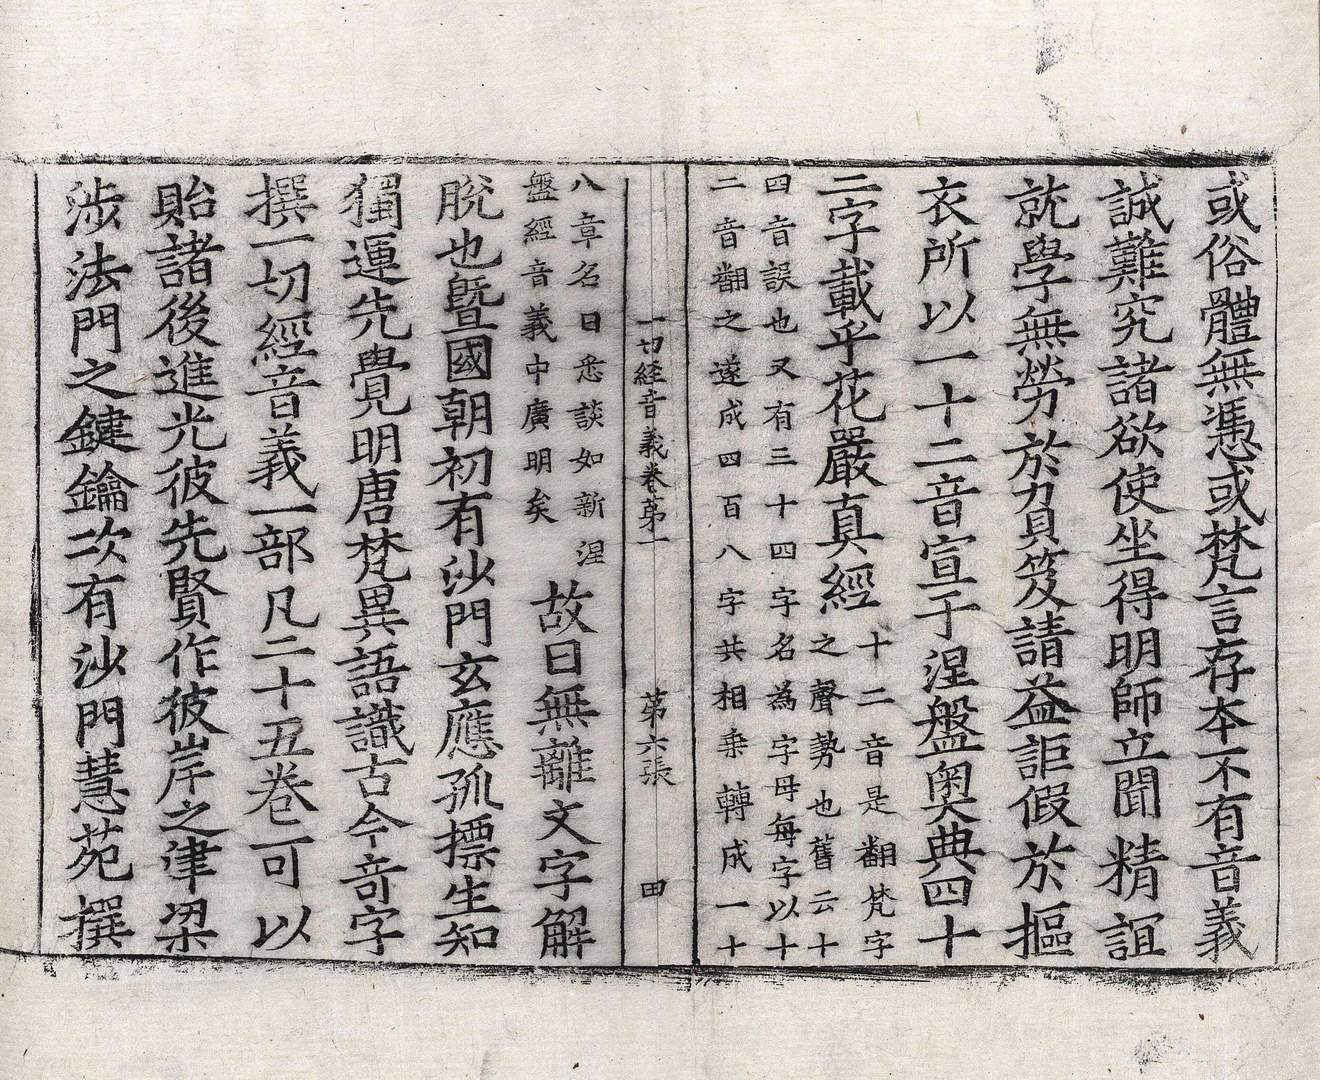 或俗體無憑或梵言存本不有音義
誠難究諸欲使坐得明師立聞精誼
就學無勞於負笈請益詎假於摳
衣所以一十二音宣于涅盤奧典四十
二字載乎花嚴真經
十二音是翻梵字
之聲勢也舊云十
四音誤也又有三十四字名為字母每字以十
二音翻之遂成四百八字共相乗轉成一十
一切経音義卷苐一 苐六張 田
八章名曰悉談如新涅
盤經音義中廣明矣
故曰無離文字解
脫也曁國朝初有沙門玄應孤摽生知
獨運先覺明唐梵異語識古今奇字
撰一切經音義一部凡二十五卷可以
貽諸後進光彼先賢作彼岸之律梁
涉法門之鍵鑰次有沙門慧苑撰